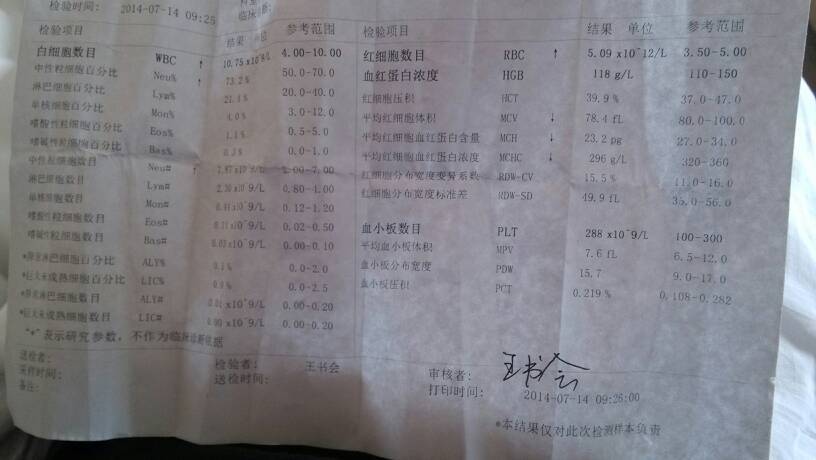 检验时间: 2014-07-14 09:25
临床诊断:
检验项目 结果 单位 参考范围 检验项目 结果 单位 参考范围
白细胞数目 WBC ↑ 10.75 x10^9/L 4.00-10.00 红细胞数目 RBC ↑ 5.09 x10^12/L 3.50-5.00
中性粒细胞百分比 Neu% ↑ 73.2 % 50.0-70.0 血红蛋白浓度 HGB 118 g/L 110-150
淋巴细胞百分比 Lym% 21.4 % 20.0-40.0 红细胞压积 HCT 39.9 % 37.0-47.0
单核细胞百分比 Mon% 4.0 % 3.0-12.0 平均红细胞体积 MCV ↓ 78.4 fL 80.0-100.0
嗜酸性粒细胞百分比 Eos% 1.1 % 0.5-5.0 平均红细胞血红蛋白含量 MCH ↓ 23.2 pg 27.0-34.0
嗜碱性粒细胞百分比 Bas% 0.3 % 0.0-1.0 平均红细胞血红蛋白浓度 MCHC ↓ 296 g/L 320-360
中性粒细胞数目 Neu# ↑ 7.87 x10^9/L 2.00-7.00 红细胞分布宽度变异系数 RDW-CV 15.5 % 11.0-16.0
淋巴细胞数目 Lym# 2.30 x10^9/L 0.80-4.00 红细胞分布宽度标准差 RDW-SD 49.9 fL 35.0-56.0
单核细胞数目 Mon# x10^9/L 0.12-1.20
嗜酸性粒细胞数目 Eos# 0.11 x10^9/L 0.02-0.50 血小板数目 PLT 288 x10^9/L 100-300
嗜碱性粒细胞数目 Bas# 0.03 x10^9/L 0.00-0.10 平均血小板体积 MPV 7.6 fL 6.5-12.0
*异常淋巴细胞百分比 ALY% % 0.0-2.0 血小板分布宽度 PDW 15.7 9.0-17.0
*巨大未成熟细胞百分比 LIC% % 0.0-2.5 血小板压积 PCT 0.219 % 0.108-0.282
*异常淋巴细胞数目 ALY# 0.01 x10^9/L 0.00-0.20
*巨大未成熟细胞数目 LIC# 0.00 x10^9/L 0.00-0.20
"*"表示研究参数, 不作为临床诊断依据
送检者: 检验者: 王书会 审核者: 王书会
采样时间: 送检时间: 打印时间: 2014-07-14 09:26:00
备注:
*本结果仅对此次检测样本负责